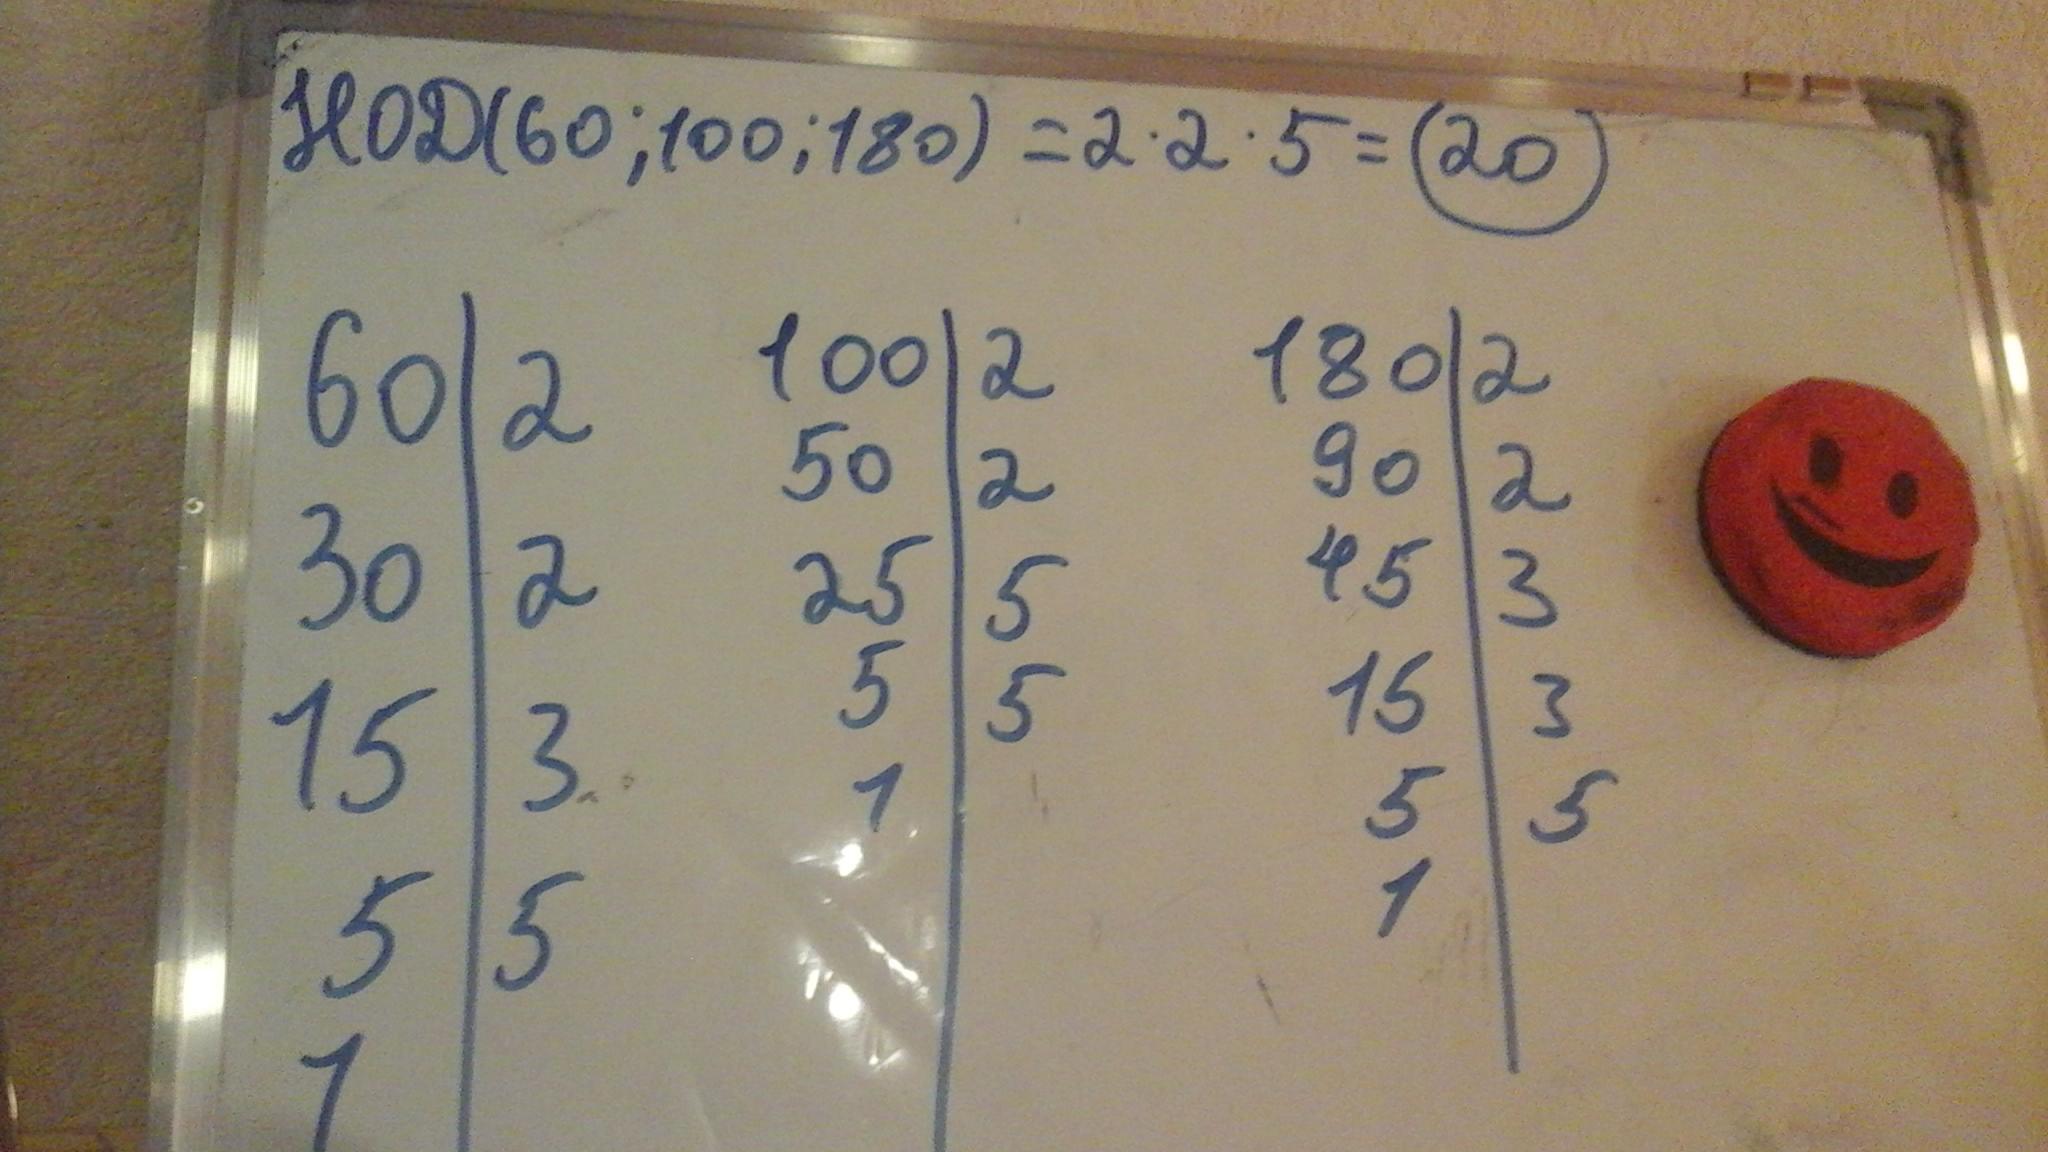 НОД(60;100;180) = 2·2·5 = 20
60|2
30|2
15|3
5|5
1
100|2
50|2
25|5
5|5
1
180|2
90|2
45|3
15|3
5|5
1